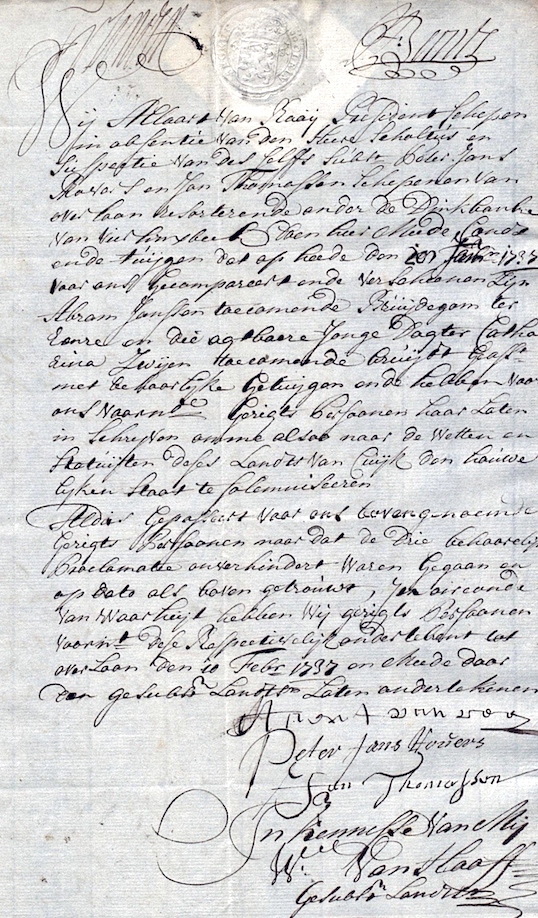 Wij Allart Van Raaij President Schepen
in absentie van den Heere Scholtus en
Suspectie van des selfs Subst. Peter Jans
en Jan Thomassen Schepenen van
overlaan resorterende onder de Dinkbanke
van Vierlinxbeek Doen hier mede Condt
ende tuijgen dat op heede den 1737
voor ons Gecompareert ende verschenen zijn
Abram Janssen toecomende Bruijdegom ter
Eenre en die agtbaere Jonge Dogter Catha
rina Zwijen toecomende bruijdt
met behoorlijke Getuijgen ende hebben voor
ons voornde Gerigts Persoonen haar Laten
in schrijven omme alsoo naar de Wetten en
Statuijten deses Landts van Cuijk den houwe
lijken staat te solemniseeren
Aldus Gepasseert voor ons bovengenoemde
Gerigts Persoonen naar dat de Drie behoorelij
Proclamatie onverhindert waren Gegaan en
op dato als boven getrouwt, Ten oirconde
van waarheijt hebben Wij gerigts Persoonen
voornt dese Respectivelijk onderteekent tot
overlaan den 10 Febr 1737 en Meede door
den gesubstn Landtsn Laten onderteekenen
Peter Jans
Jan Thomassen
In kennisse Van Mij
W. Van Haaff
Gesubstn Landtsn